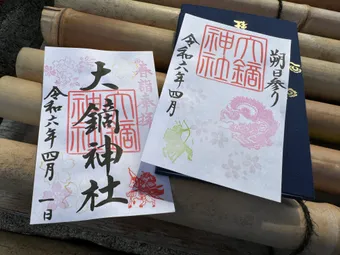 大鏑神社
大鏑
神社
令和六年四月一日
朔日参り
大鏑
神社
令和六年四月